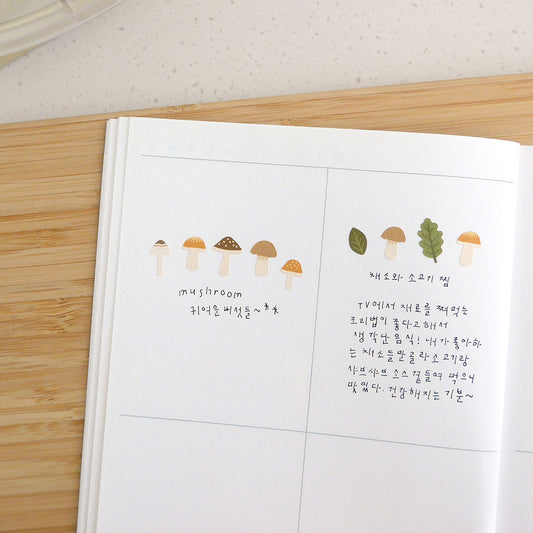 mushroom
귀여운 버섯들~**
채소와 소고기 찜
TV에서 재료를 쪄먹는
조리법이 좋다고해서
생각난 음식! 내가 좋아하
는 채소들만골라 소고기랑
샤브샤브 소스 곁들여 먹으니
맛있다. 건강해지는 기분~